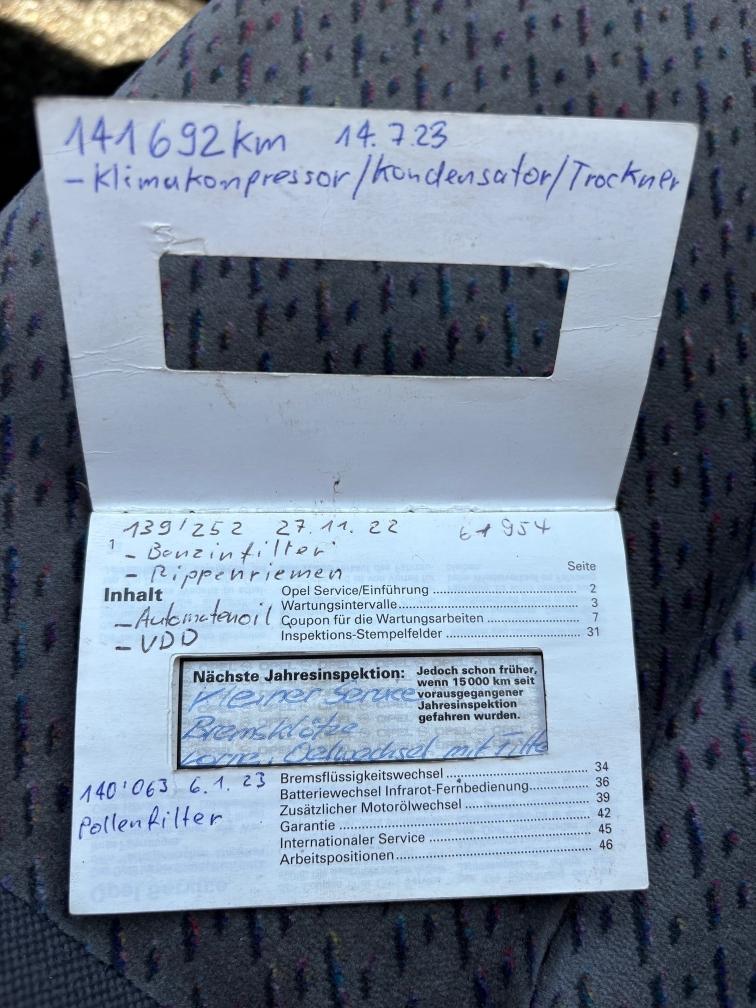 141692km 14.7.23
- Klimakompressor/Kondensator/Trockner
139'252 27.11.22
- Benzinfilter
- Rippenriemen
Seite
Inhalt
Opel Service/Einführung 2
Wartungsintervalle 3
- Automatenoil
Coupon für die Wartungsarbeiten 7
- VDD
Inspektions-Stempelfelder 31
Nächste Jahresinspektion:
Jedoch schon früher,
wenn 15 000 km seit
vorausgegangener
Jahresinspektion
gefahren wurden.
Kleiner Service
Bremsklötze
vorne, Oelwechsel mit Filte
140'063 6.1.23
Pollenfilter
Bremsflüssigkeitswechsel 34
Batteriewechsel Infrarot-Fernbedienung 36
Zusätzlicher Motorölwechsel 39
Garantie 42
Internationaler Service 45
Arbeitspositionen 46